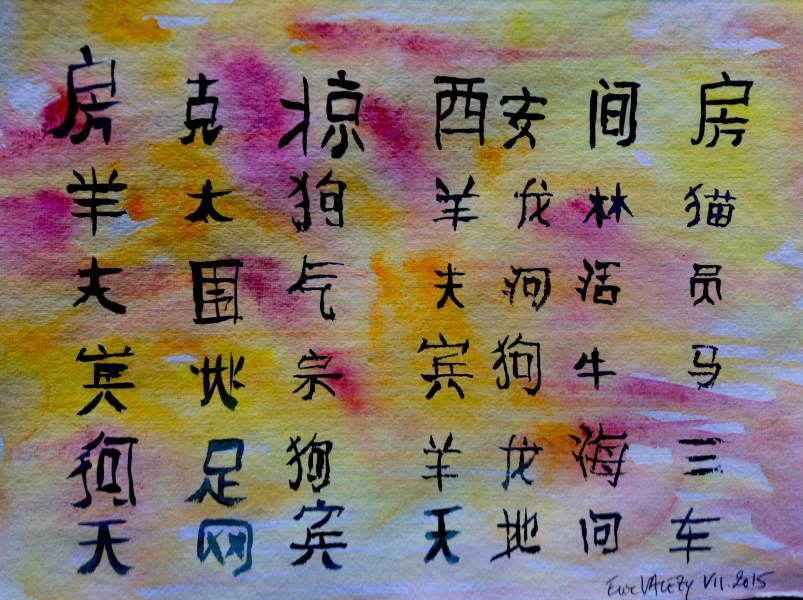 房 克 掠 西 安 间 房
羊 太 狗 羊 龙 林 猫
夫 围 气 夫 河 活 员
宾 宗 宾 狗 牛 马
狗 足 狗 羊 龙 海 三
天 网 宾 天 地 问 车
VII.2015